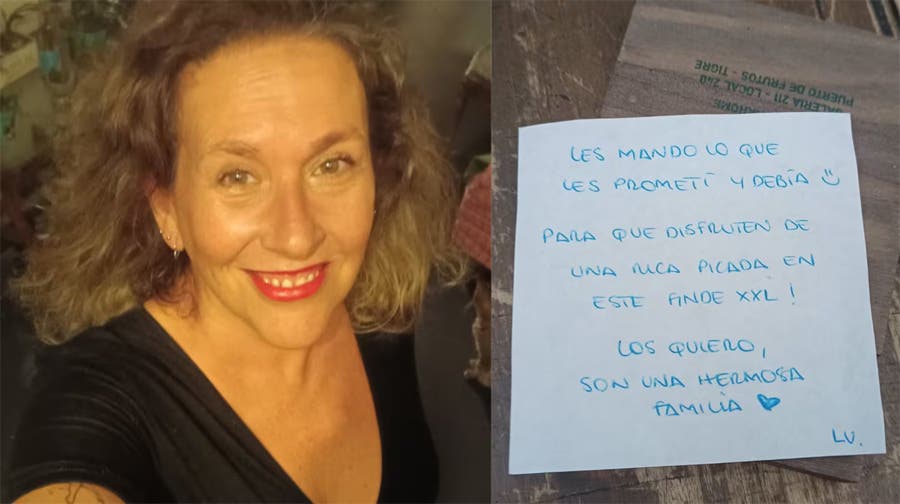 ALERIA 211 - LOCAL 240
PUERTO DE FRUTOS - TIGRE
LES MANDO LO QUE
LES PROMETÍ Y DEBÍA
PARA QUE DISFRUTEN DE
UNA RICA PICADA EN
ESTE FINDE XXL!
LOS QUIERO,
SON UNA HERMOSA
FAMILIA
LU.